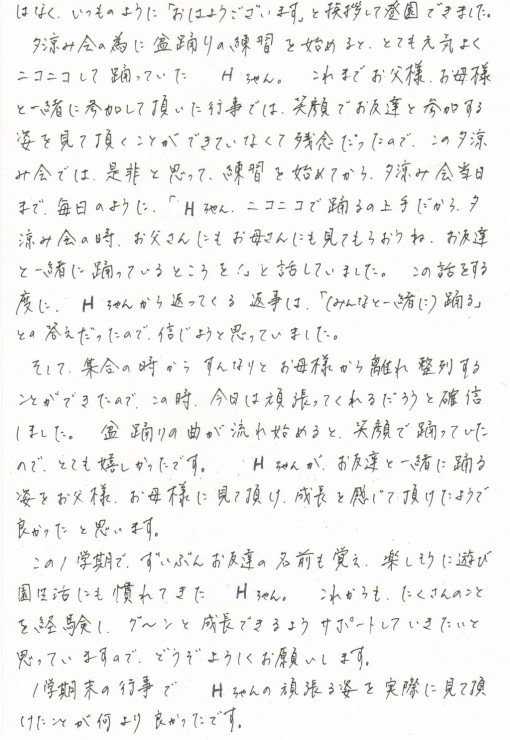 はなく、いつものように「おはようございます」と挨拶して登園できました。
夕涼み会の為に盆踊りの練習を始めると、とても元気よく
ニコニコして踊っていた Hちゃん。 これまでお父様、お母様
と一緒に参加して頂いた行事では、笑顔でお友達と参加する
姿を見て頂くことができていなくて残念だったので、この夕涼
み会では、是非と思って、練習を始めてから、夕涼み会当日
まで、毎日のように、「Hちゃん、ニコニコで踊るの上手だから、夕
涼み会の時、お父さんにもお母さんにも見てもらおうね、お友達
と一緒に踊っているところを!」と話していました。 この話をする
度に、Hちゃんから返ってくる返事は、「(みんなと一緒に)踊る」
との答えだったので、信じようと思っていました。
そして、集合の時からすんなりとお母様から離れ整列する
ことができたので、この時、今日は頑張ってくれるだろうと確信
しました。 盆踊りの曲が流れ始めると、笑顔で踊っていた
ので、とても嬉しかったです。 Hちゃんが、お友達と一緒に踊る
姿をお父様、お母様に見て頂け、成長を感じて頂けたようで
良かったと思います。
この1学期で、ずいぶんお友達の名前も覚え、楽しそうに遊び
園生活にも慣れてきた Hちゃん。 これからも、たくさんのこと
を経験し、グ〜ンと成長できるようサポートしていきたいと
思っていますので、どうぞよろしくお願いします。
1学期末の行事で Hちゃんの頑張る姿を実際に見て頂
けたことが何より良かったです。